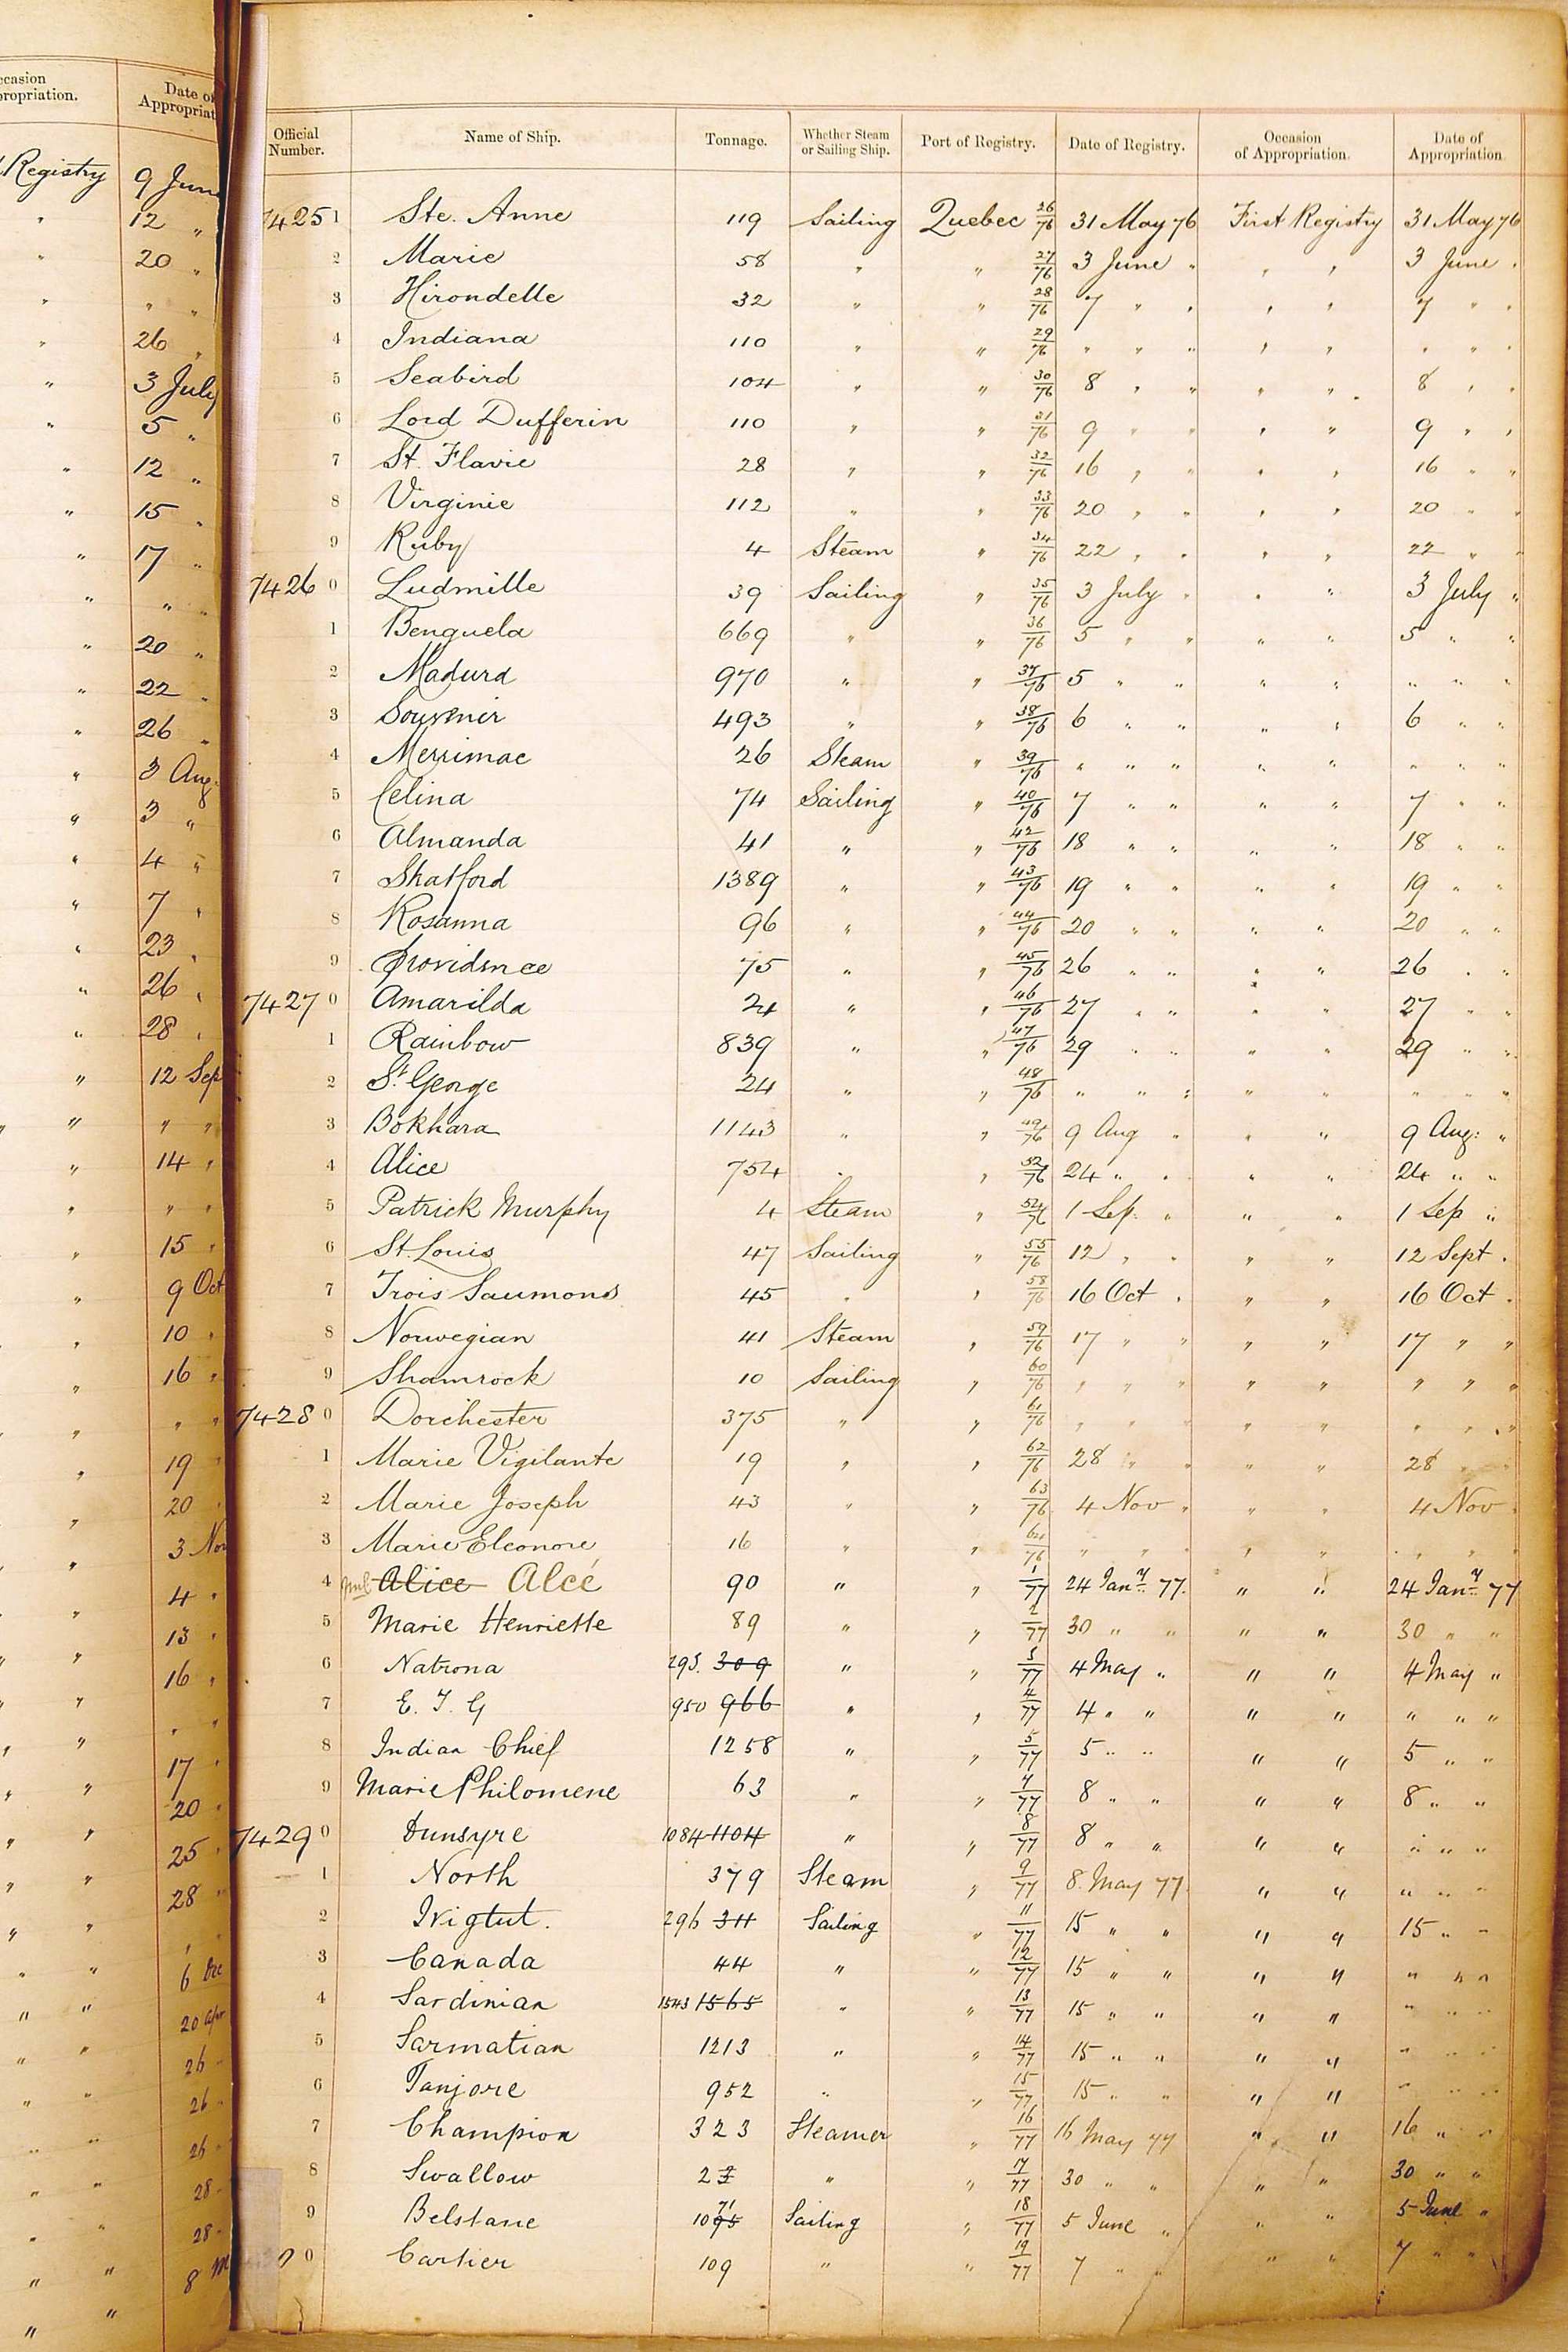 ccasion Date of
ropriation. Appropriat
Registry 9 June
12 "
20 "
" "
26 "
3 July
5 "
12 "
15 "
17 "
" "
20 "
22 "
26 "
3 Aug.
3 "
4 "
7 "
23 "
26 "
28 "
12 Sep
" "
14 "
" "
15 "
9 Oct
10 "
16 "
" "
19 "
20 "
3 Nov
4 "
13 "
16 "
" "
17 "
20 "
25 "
28 "
" "
6 Dec
20 Apr
26 "
26 "
26 "
28 "
28 "
8 M
Official Number. Name of Ship. Tonnage. Whether Steam or Sailing Ship. Port of Registry. Date of Registry. Occasion of Appropriation. Date of Appropriation.
74251 Ste. Anne 119 Sailing Quebec 26/76 31 May 76 First Registry 31 May 76
2 Marie 58 " " 27/76 3 June " " " 3 June "
3 Hirondelle 32 " " 28/76 7 " " " " 7 " "
4 Indiana 110 " " 29/76 " " " " " " " "
5 Seabird 104 " " 30/76 8 " " " " 8 " "
6 Lord Dufferin 110 " " 31/76 9 " " " " 9 " "
7 St. Flavie 28 " " 32/76 16 " " " " 16 " "
8 Virginie 112 " " 33/76 20 " " " " 20 " "
9 Ruby 4 Steam " 34/76 22 " " " " 22 " "
74260 Ludmille 39 Sailing " 35/76 3 July " " " 3 July "
1 Benguela 669 " " 36/76 5 " " " " 5 " "
2 Madura 970 " " 37/76 5 " " " " " " "
3 Souvenir 493 " " 38/76 6 " " " " 6 " "
4 Merrimac 26 Steam " 39/76 " " " " " " " "
5 Celina 74 Sailing " 40/76 7 " " " " 7 " "
6 Almanda 41 " " 42/76 18 " " " " 18 " "
7 Shatford 1389 " " 43/76 19 " " " " 19 " "
8 Rosanna 96 " " 44/76 20 " " " " 20 " "
9 Providence 75 " " 45/76 26 " " " " 26 " "
74270 Amarilda 24 " " 46/76 27 " " " " 27 " "
1 Rainbow 839 " " 47/76 29 " " " " 29 " "
2 St. George 24 " " 48/76 " " " " " " " "
3 Bokhara 1143 " " 49/76 9 Aug " " " 9 Aug: "
4 Alice 754 " " 52/76 24 " " " " 24 " "
5 Patrick Murphy 4 Steam " 54/76 1 Sep. " " " 1 Sep "
6 St. Louis 47 Sailing " 55/76 12 " " " " 12 Sept "
7 Trois Saumons 45 " " 58/76 16 Oct " " " 16 Oct "
8 Norwegian 41 Steam " 59/76 17 " " " " 17 " "
9 Shamrock 10 Sailing " 60/76 " " " " " " " "
74280 Dorchester 375 " " 61/76 " " " " " " " "
1 Marie Vigilante 19 " " 62/76 28 " " " " 28 " "
2 Marie Joseph 43 " " 63/76 4 Nov " " " 4 Nov "
3 Marie Eleonore 16 " " 64/76 " " " " " " " "
4 Alice Alcé 90 " " 1/77 24 Jany. 77. " " 24 Jany. 77
5 Marie Henriette 89 " " 2/77 30 " " " " 30 " "
6 Natrona 293. 309 " " 3/77 4 May " " " 4 May "
7 E. T. G 950 966 " " 4/77 4 " " " " " " "
8 Indian Chief 1258 " " 5/77 5 " " " " 5 " "
9 Marie Philomene 63 " " 7/77 8 " " " " 8 " "
74290 Dunsyre 1084 1104 " " 8/77 8 " " " " " " "
1 North 379 Steam " 9/77 8. May 77 " " " " "
2 Ivigtut. 296 311 Sailing " 11/77 15 " " " " 15 " "
3 Canada 44 " " 12/77 15 " " " " " " "
4 Sardinian 1543 1565 " " 13/77 15 " " " " " " "
5 Sarmatian 1213 " " 14/77 15 " " " " " " "
6 Tanjore 952 " " 15/77 15 " " " " " " "
7 Champion 323 Steamer " 16/77 16 May 77 " " 16 " "
8 Swallow 2 " " 17/77 30 " " " " 30 " "
9 Belstane 1095 71 Sailing " 18/77 5 June " " " 5 June "
0 Cartier 109 " " 19/77 7 " " " " 7 " "